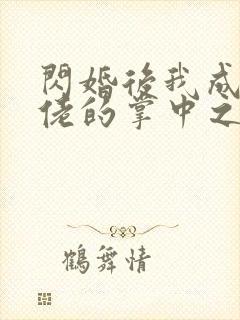 閃婚後我成
佬的掌中之
鶴舞情